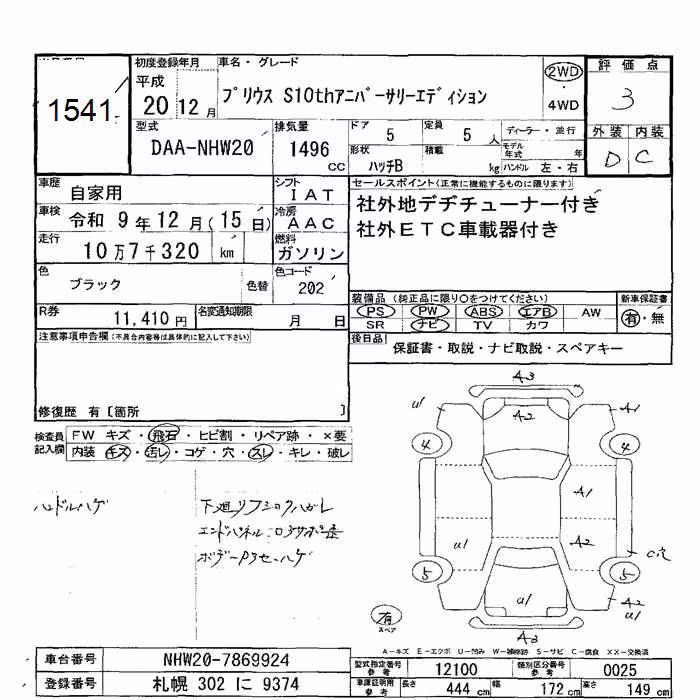 初度登録年月
車名・グレード
平成
20年 12月
プリウス S10thアニバーサリーエディション
2WD
・
4WD
評価点
3
1541
型式
DAA-NHW20
排気量
1496
CC
ドア 5
定員 5人
ディーラー・並行
形状 ハッチB
積載 kg
モデル年式 年
ハンドル 左・右
外装 内装
D C
車歴
自家用
シフト
IAT
セールスポイント(正常に機能するものに限ります)
車検
令和 9年12月(15日)
冷房
AAC
社外地デヂチューナー付き
社外ETC車載器付き
走行
10万7千320 km
燃料
ガソリン
色
ブラック
色替
色コード
202
装備品 (純正品に限り○をつけてください)
新車保証書
PS PW ABS エアB AW
SR ナビ TV カワ
有・無
R券
11,410円
名変通知期限
月 日
後日品
保証書・取説・ナビ取説・スペアキー
注意事項申告欄(不具合内容等は具体的に記入して下さい)
修復歴 有〔箇所 〕
検査員記入欄
FW キズ・飛石・ヒビ割・リペア跡・×要
内装 キズ・汚レ・コゲ・穴・スレ・キレ・破レ
ハンドルハゲ
エンドパネル
A3
U1
A2
A1
4
4
A1
U1
A2
C穴
5
5
U1
A2
U1
A3
有
スペア
A-キズ E-エクボ U-凹み W-補修跡 S-サビ C-腐食 XX-交換済
車台番号
NHW20-7869924
型式指定番号
参考
12100
類別区分番号
参考
0025
登録番号
札幌 302 に 9374
車庫証明用
参考
長さ 444 cm
幅 172 cm
高さ 149 cm